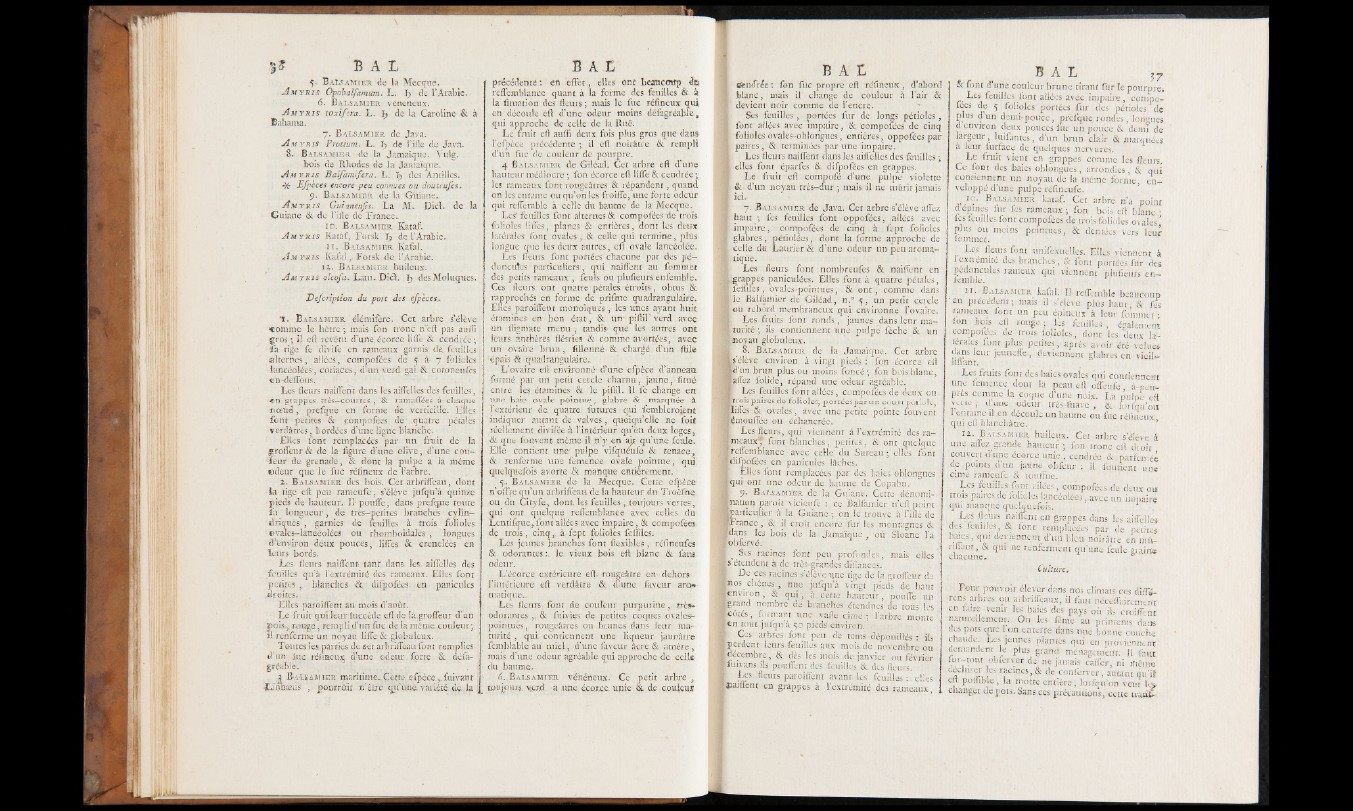 36 B A L
5. BALSAMIER de la Mecque.
AMYRIS Opobalsamum. L. ♄ de l'Arabie.
6. BALSAMIER vénéneux.
AMYRIS toxifera. L. ♄ de la Caroline & à
Bahama.
7. BALSAMIER de Java.
AMYRIS Protium. L. ♄ de l'isle de Java.
8. BALSAMIER de la Jamaïque. Vulg.
bois de Rhodes de la Jamaïque.
AMYRIS Balsamifera. L. ♄ des Antilles.
* Espèces encore peu connues ou douteuses.
9. BALSAMIER de la Guiane.
AMYRIS Guianensis. La M. Dict. de la
Guiane & de l'isle de France.
10. BALSAMIER Kataf.
AMYRIS Kataf, Forsk. ♄ de l'Arabie.
11. BALSAMIER Kafal.
AMYRIS Kafal, Forsk. de l'Arabie.
12. BALSAMIER huileux.
AMYRIS oleosa. Lam. Dict. ♄ des Moluques.
Description du port des espèces.
1. BALSAMIER élémifère. Cet arbre s'élève
comme le hêtre; mais son tronc n'est pas aussi
gros; il est revêtu d'une écorce lisse & cendrée;
sa tige se divise en rameaux garnis de feuilles
alternes, ailées, composées de 5 à 7 folioles
lancéolées, coriaces, d'un verd gai & cotonneuses
en-dessous.
Les fleurs naissent dans les aisselles des feuilles,
en grappes très-courtes, & ramassées à chaque
nœud, presque en forme de verticille. Elles
sont petites & composées de quatre pétales
verdâtres, bordées d'une ligne blanche.
Elles sont remplacées par un fruit de la
grosseur & de la figure d'une olive, d'une cou-
leur de grenade, & dont la pulpe a la même
odeur que le suc résineux de l'arbre.
2. BALSAMIER des bois. Cet arbrisseau, dont
la tige est peu rameuse, s'élève jusqu'à quinze
pieds de hauteur. Il pousse, dans presque toute
sa longueur, de très-petites branches cylin-
driques, garnies de feuilles à trois folioles
ovales-lancéolées ou rhomboïdales, longues
d'environ deux pouces, lisses & crenelées en
leurs bords.
Les fleurs naissent tant dans les aisselles des
feuilles qu'à l'extrémité des rameaux. Elles sont
petites, blanches & disposées en panicules
droites.
Elles paroissent au mois d'août.
Le fruit qui leur succède est de la grosseur d'un
pois, rouge, rempli d'un suc de la même couleur;
il renferme un noyau lisse & globuleux.
Toutes les parties de cet arbrisseau sont remplies
d'un suc résineux d'une odeur forte & désa-
gréable.
3. BALSAMIER maritime. Cette espèce, suivant
Linnæus, pourroit n'être qu'une variété de la
B A L
précédente: en effet, elles ont beaucoup de
ressemblance quant à la forme des feuilles & à
la situation des fleurs; mais le suc résineux qui
en découle est d'une odeur moins désagréable,
qui approche de celle de la Rue.
Le fruit est aussi deux fois plus gros que dans
l'espèce précédente; il est noirâtre & rempli
d'un suc de couleur de pourpre.
4. BALSAMIER de Giléad. Cet arbre est d'une
hauteur médiocre; son écorce est lisse & cendrée;
les rameaux sont rougeâtres & répandent, quand
on les entame ou qu'on les froisse, une forte odeur
qui ressemble à celle du baume de la Mecque.
Les feuilles sont alternes & composées de trois
folioles lisses, planes & entières, dont les deux
latérales sont ovales, & celle qui termine, plus
longue que les deux autres, est ovale lancéolée.
Les fleurs sont portées chacune par des pé-
doncules particuliers, qui naissent au sommet
des petits rameaux, seuls ou plusieurs ensemble.
Ces fleurs ont quatre pétales étroits, obtus &
rapprochés en forme de prisme quadrangulaire.
Elles paroissent monoïques, les unes ayant huit
étamines en bon état, & un pistil verd avec
un stigmate menu, tandis que les autres ont
leurs anthères flétries & comme avortées, avec
un ovaire brun, sillonné & chargé d'un stile
épais & quadrangulaire.
L'ovaire est environné d'une espèce d'anneau
formé par un petit cercle charnu, jaune, situé
entre les étamines & le pistil. Il se change en
une baie ovale pointue, glabre & marquée à
l'extérieur de quatre sutures qui sembleroient
indiquer autant de valves, quoiqu'elle ne soit
réellement divisée à l'intérieur qu'en deux loges,
& que souvent même il n'y en ait qu'une seule.
Elle contient une pulpe visqueuse & tenace,
& renferme une semence ovale pointue, qui
quelquefois avorte & manque entièrement.
5. BALSAMIER de la Mecque. Cette espèce
n'offre qu'un arbrisseau de la hauteur du Troëne
ou du Cityse, dont les feuilles, toujours vertes,
qui ont quelque ressemblance avec celles du
Lentisque, sont ailées avec impaire, & composées
de trois, cinq, à sept folioles sessiles.
Les jeunes branches sont flexibles, résineuses
& odorantes: le vieux bois est blanc & sans
odeur.
L'écorce extérieure est rougeâtre en dehors
l'intérieure est verdâtre & d'une saveur aro-
matique.
Les fleurs sont de couleur purpurine, très-
odorantes, & suivies de petites coques ovales-
pointues, rougeâtres ou brunes dans leur ma-
turité, qui contiennent une liqueur jaunâtre
semblable au miel, d'une saveur âcre & amère,
mais d'une odeur agréable qui approche de celle
du baume.
6. BALSAMIER vénéneux. Ce petit arbre,
toujours verd a une écorce unie & de couleur
B A L
cendrée: son suc propre est résineux, d'abord
blanc, mais il change de couleur à l'air &
devient noir comme de l'encre.
Ses feuilles, portées sur de longs pétioles,
sont ailées avec impaire, & composées de cinq
folioles ovales-oblongues, entières, opposées par
paires, & terminées par une impaire.
Les fleurs naissent dans les aisselles des feuilles;
elles sont éparses & disposées en grappes.
Le fruit est composé d'une pulpe violette
& d'un noyau très-dur; mais il ne mûrit jamais
ici.
7. BALSAMIER de Java. Cet arbre s'élève assez
haut; ses feuilles sont opposées, ailées avec
impaire, composées de cinq à sept folioles
glabres, pétiolées, dont la forme approche de
celle du Laurier & d'une odeur un peu aroma-
tique.
Les fleurs sont nombreuses & naissent en
grappes paniculées. Elles sont à quatre pétales,
sessiles, ovales-pointues, & ont, comme dans
le Balsamier de Giléad, n.° 5, un petit cercle
ou rebord membraneux qui environne l'ovaire.
Les fruits sont ronds, jaunes dans leur ma-
turité; ils contiennent une pulpe sèche & un
noyau globuleux.
8. BALSAMIER de la Jamaïque. Cet arbre
s'élève environ à vingt pieds: son écorce est
d'un brun plus ou moins foncé; son bois blanc,
assez solide, répand une odeur agréable.
Les feuilles sont ailées, composées de deux ou
trois paires de folioles, portées par un court pétiole,
lisses & ovales, avec une petite pointe souvent
émoussée ou échancrée.
Les fleurs, qui viennent à l'extrémité des ra-
meaux, sont blanches, petites, & ont quelque
ressemblance avec celle du Sureau; elles sont
disposées en panicules lâches.
Elles sont remplacées par des baies oblongues
qui ont une odeur de baume de Copahu.
9. BALSAMIER de la Guiane. Cette dénomi-
nation paroît vicieuse: ce Balsamier n'est point
particulier à la Guiane; on le trouve à l'isle de
France, & il croît encore sur les montagnes &
dans les bois de la Jamaïque, où Sloane l'a
observé.
Ses racines sont peu profondes, mais elles
s'étendent à de très-grandes distances.
De ces racines s'élève une tige de la grosseur de
nos chênes, nue jusqu'à vingt pieds de haut
environ, & qui, à cette hauteur, pousse un
grand nombre de branches étendues de tous les
côtés, formant une vaste cime: l'arbre monte
en tout jusqu'à 50 pieds environ.
Ces arbres sont peu de tems dépouillés: ils
perdent leurs feuilles aux mois de novembre ou
décembre, & dès les mois de janvier ou février
suivans ils poussent des feuilles & des fleurs.
Les fleurs paroissent avant les feuilles: elles
naissent en grappes à l'extrémité des rameaux,
B A L 37
& sont d'une couleur brune tirant sur le pourpre.
Les feuilles sont ailées avec impaire, compo-
sées de 5 folioles portées sur des pétioles de
plus d'un demi-pouce, presque rondes, longues
d'environ deux pouces sur un pouce & demi de
largeur, luisantes, d'un brun clair & marquées
à leur surface de quelques nervures.
Le fruit vient en grappes comme les fleurs.
Ce sont des baies oblongues, arrondies, & qui
contiennent un noyau de la même forme, en-
veloppé d'une pulpe résineuse.
10. BALSAMIER kataf. Cet arbre n'a point
d'épines sur les rameaux; son bois est blanc;
ses feuilles sont composées de trois folioles ovales,
plus ou moins pointues, & dentées vers leur
sommet.
Les fleurs sont unisexuelles. Elles viennent à
l'extrémité des branches, & sont portées sur des
péduncules rameux qui viennent plusieurs en-
semble.
11. BALSAMIER kafal. Il ressemble beaucoup
au précédent; mais il s'élève plus haut, & ses
rameaux sont un peu épineux à leur sommet:
son bois est rouge; les feuilles, également
composées de trois folioles, dont les deux la-
térales sont plus petites, après avoir été velues
dans leur jeunesse, deviennent glabres en vieil-
lissant.
Les fruits sont des baies ovales qui contiennent
une semence dont la peau est osseuse, à-peu-
près comme la coque d'une noix. La pulpe est
verte, d'une odeur très-suave, & lorsqu'on
l'entame il en découle un baume ou suc résineux,
qui est blanchâtre.
12. BALSAMIER huileux. Cet arbre s'élève à
une assez grande hauteur; son tronc est droit,
couvert d'une écorce unie, cendrée & parsemée
de points d'un jaune obscur: il soutient une
cime rameuse & touffue.
Les feuilles sont ailées, composées de deux ou
trois paires de folioles lancéolées, avec un impaire
qui manque quelquefois.
Les fleurs naissent en grappes dans les aisselles
des feuilles, & sont remplacées par de petites
baies, qui deviennent d'un bleu noirâtre en mû-
rissant, & qui ne renferment qu'une seule graine
chacune.
Culture.
Pour pouvoir élever dans nos climats ces diffé-
rens arbres ou arbrisseaux, il faut nécessairement
en faire venir les baies des pays où ils croissent
naturellement. On les sème au printems dans
des pots que l'on enterre dans une bonne couche
chaude. Les jeunes plantes qui en proviennent
demandent le plus grand ménagement. Il faut
sur-tout observer de ne jamais casser, ni même
déchirer les racines, & de conserver, autant qu'il
est possible, la motte entière, lorsqu'on veut les
changer de pots. Sans ces précautions, cette trans-